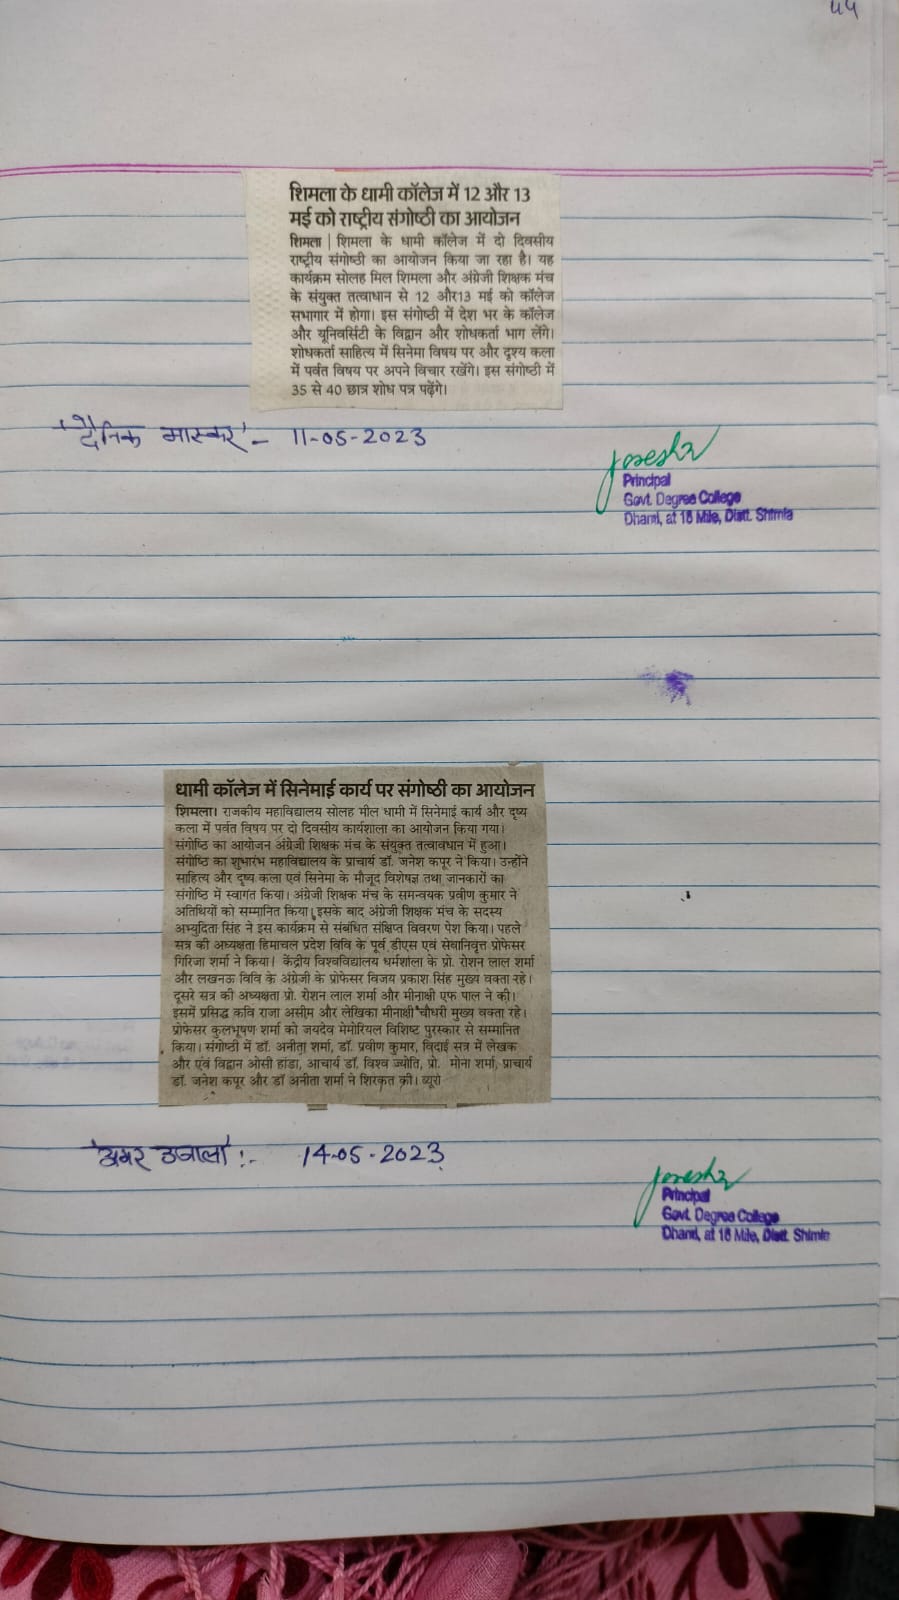 44
शिमला के धामी कॉलेज में 12 और 13
मई को राष्ट्रीय संगोष्ठी का आयोजन
शिमला | शिमला के धामी कॉलेज में दो दिवसीय
राष्ट्रीय संगोष्ठी का आयोजन किया जा रहा है। यह
कार्यक्रम सोलह मिल शिमला और अंग्रेजी शिक्षक मंच
के संयुक्त तत्वाधान से 12 और13 मई को कॉलेज
सभागार में होगा। इस संगोष्ठी में देश भर के कॉलेज
और यूनिवर्सिटी के विद्वान और शोधकर्ता भाग लेंगे।
शोधकर्ता साहित्य में सिनेमा विषय पर और दृश्य कला
में पर्वत विषय पर अपने विचार रखेंगे। इस संगोष्ठी में
35 से 40 छात्र शोध पत्र पढ़ेंगे।
'दैनिक भास्कर'- 11-05-2023
Principal
Govt. Degree College
Dhami, at 16 Mile, Distt. Shimla
धामी कॉलेज में सिनेमाई कार्य पर संगोष्ठी का आयोजन
शिमला। राजकीय महाविद्यालय सोलह मील धामी में सिनेमाई कार्य और दृष्य
कला में पर्वत विषय पर दो दिवसीय कार्यशाला का आयोजन किया गया।
संगोष्ठि का आयोजन अंग्रेजी शिक्षक मंच के संयुक्त तत्वावधान में हुआ।
संगोष्ठि का शुभारंभ महाविद्यालय के प्राचार्य डॉ. जनेश कपूर ने किया। उन्होंने
साहित्य और दृष्य कला एवं सिनेमा के मौजूद विशेषज्ञ तथा जानकारों का
संगोष्ठि में स्वागत किया। अंग्रेजी शिक्षक मंच के समन्वयक प्रवीण कुमार ने
अतिथियों को सम्मानित किया। इसके बाद अंग्रेजी शिक्षक मंच के सदस्य
अभ्युदिता सिंह ने इस कार्यक्रम से संबंधित संक्षिप्त विवरण पेश किया। पहले
सत्र की अध्यक्षता हिमाचल प्रदेश विवि के पूर्व डीएस एवं सेवानिवृत्त प्रोफेसर
गिरिजा शर्मा ने किया। केंद्रीय विश्वविद्यालय धर्मशाला के प्रो. रोशन लाल शर्मा
और लखनऊ विवि के अंग्रेजी के प्रोफेसर विजय प्रकाश सिंह मुख्य वक्ता रहे।
दूसरे सत्र की अध्यक्षता प्रो. रोशन लाल शर्मा और मीनाक्षी एफ पाल ने की।
इसमें प्रसिद्ध कवि राजा असीम और लेखिका मीनाक्षी चौधरी मुख्य वक्ता रहे।
प्रोफेसर कुलभूषण शर्मा को जयदेव मेमोरियल विशिष्ट पुरस्कार से सम्मानित
किया। संगोष्ठी में डॉ. अनीता शर्मा, डॉ. प्रवीण कुमार, विदाई सत्र में लेखक
और एवं विद्वान ओसी हांडा, आचार्य डॉ. विश्व ज्योति, प्रो. मोना शर्मा, प्राचार्य
डॉ. जनेश कपूर और डॉ अनीता शर्मा ने शिरकत की। ब्यूरो
'अमर उजाला':- 14-05-2023
Principal
Govt. Degree College
Dhami, at 16 Mile, Distt. Shimla